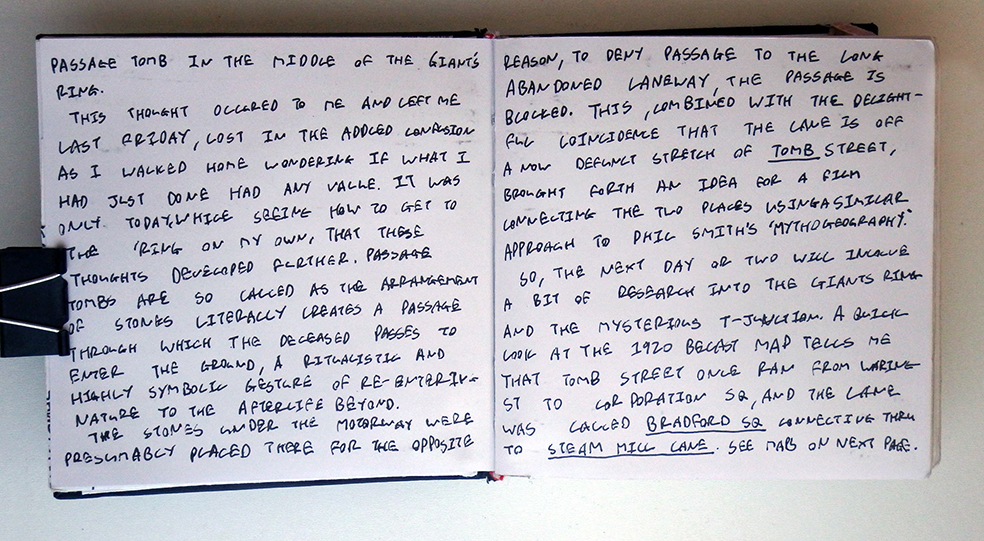 PASSAGE TOMB IN THE MIDDLE OF THE GIANT'S
RING.
THIS THOUGHT OCCURED TO ME AND LEFT ME
LAST FRIDAY, LOST IN THE ADDLED CONFUSION
AS I WALKED HOME WONDERING IF WHAT I
HAD JUST DONE HAD ANY VALUE. IT WAS
ONLY TODAY, WHILE SEEING HOW TO GET TO
THE 'RING ON MY OWN, THAT THESE
THOUGHTS DEVELOPED FURTHER. PASSAGE
TOMBS ARE SO CALLED AS THE ARRANGEMENT
OF STONES LITERALLY CREATES A PASSAGE
THROUGH WHICH THE DECEASED PASSES TO
ENTER THE GROUND, A RITUALISTIC AND
HIGHLY SYMBOLIC GESTURE OF RE-ENTERING
NATURE TO THE AFTERLIFE BEYOND.
THE STONES UNDER THE MOTORWAY WERE
PRESUMABLY PLACED THERE FOR THE OPPOSITE
REASON, TO DENY PASSAGE TO THE LONG
ABANDONED LANEWAY, THE PASSAGE IS
BLOCKED. THIS, COMBINED WITH THE DELIGHT-
FUL COINCIDENCE THAT THE LANE IS OFF
A NOW DEFUNCT STRETCH OF TOMB STREET,
BROUGHT FORTH AN IDEA FOR A FILM
CONNECTING THE TWO PLACES USING A SIMILAR
APPROACH TO PHIL SMITH'S 'MYTHOGEOGRAPHY.'
SO, THE NEXT DAY OR TWO WILL INVOLVE
A BIT OF RESEARCH INTO THE GIANTS RING
AND THE MYSTERIOUS T-JUNCTION. A QUICK
LOOK AT THE 1920 BELFAST MAP TELLS ME
THAT TOMB STREET ONCE RAN FROM WARING
ST TO CORPORATION SQ, AND THE LANE
WAS CALLED BRADFORD SQ CONNECTING THRU
TO STEAM MILL LANE. SEE MAPS ON NEXT PAGE.